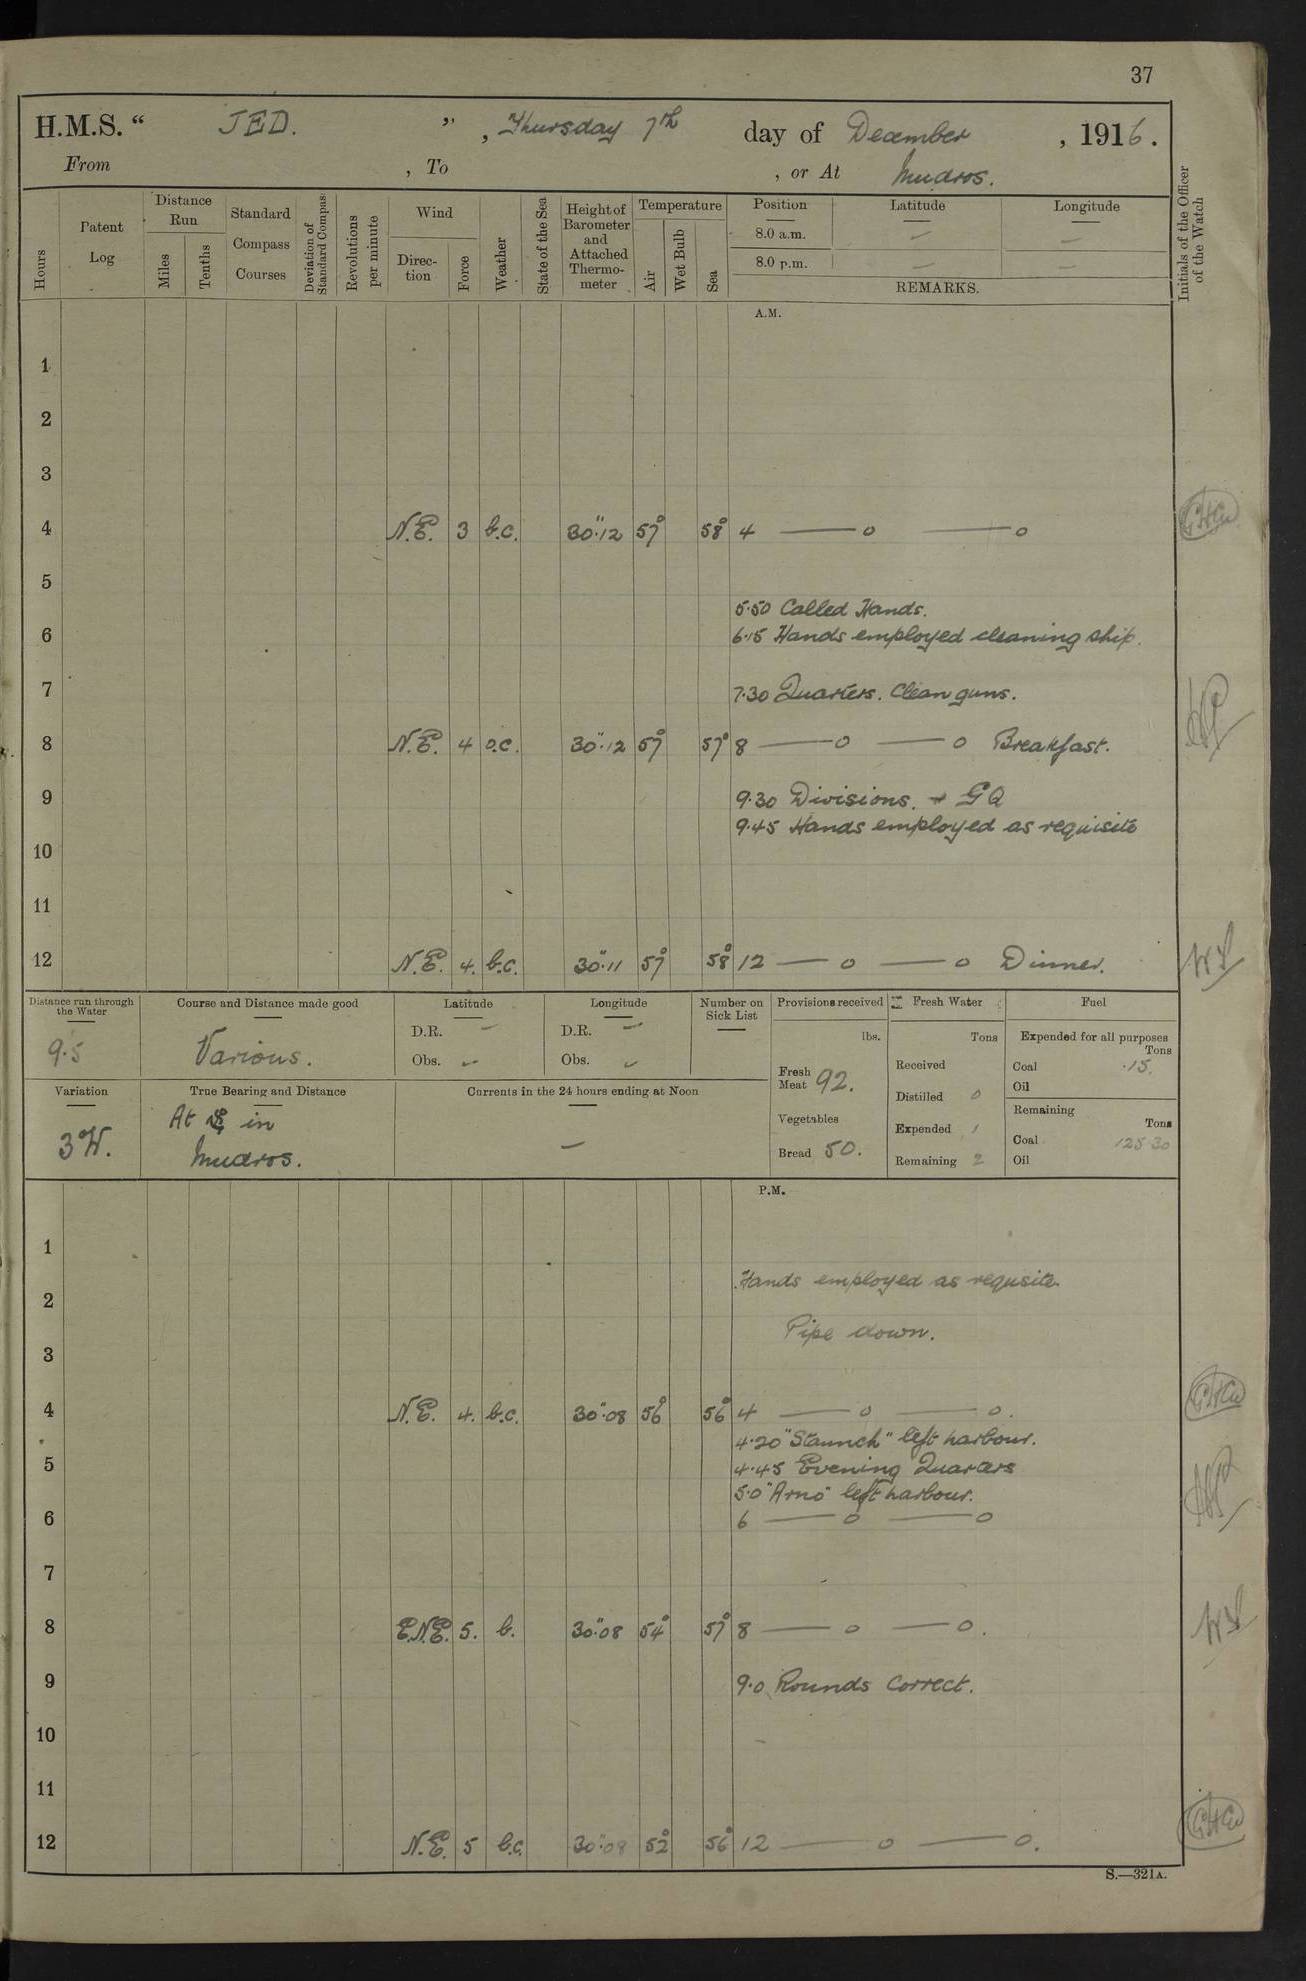 37
H.M.S. “ JED. ” , Thursday 7th day of December , 1916 .
From , To , or At Mudros.
Hours
Patent Log
Distance Run
Miles
Tenths
Standard Compass Courses
Deviation of Standard Compass
Revolutions per minute
Wind
Direc-tion
Force
Weather
State of the Sea
Height of Barometer and Attached Thermo-meter
Temperature
Air
Wet Bulb
Sea
Position Latitude Longitude
8.0 a.m. — —
8.0 p.m. — —
REMARKS.
Initials of the Officer of the Watch
A.M.
1
2
3
4 N.E. 3 b.c. 30".12 57° 58° 4 —— o —— o
5
5.50 Called Hands.
6 6.15 Hands employed cleaning ship.
7 7.30 Quarters. Clean guns.
8 N.E. 4 o.c. 30".12 57° 57° 8 —— o —— o Breakfast.
9 9.30 Divisions. + G Q
9.45 Hands employed as requisite
10
11
12 N.E. 4. b.c. 30".11 57° 58° 12 —— o —— o Dinner.
Distance run through the Water
9.5
Course and Distance made good
Various.
Latitude
D.R. —
Obs. —
Longitude
D.R. —
Obs. —
Number on Sick List
—
Variation
3 W.
True Bearing and Distance
At in
Mudros.
Currents in the 24 hours ending at Noon
—
Provisions received
lbs.
Fresh Meat 92.
Vegetables
Bread 50.
Fresh Water
Tons
Received
Distilled 0
Expended 1
Remaining 2
Fuel
Expended for all purposes
Tons
Coal .15.
Oil
Remaining
Tons
Coal 125.30
Oil
P.M.
1
Hands employed as requsite.
2
Pipe down.
3
4 N.E. 4. b.c. 30".08 56° 56° 4 —— o —— o.
4.20 "Staunch" left harbour.
5 4.45 Evening Quarters
5.0 "Arno" left harbour.
6 6 —— o —— o
7
8 E.N.E. 5. b. 30".08 54° 57° 8 —— o —— o.
9 9.0 Rounds correct.
10
11
12 N.E. 5 b.c. 30".08 52° 56° 12 —— o —— o.
S.—321A.